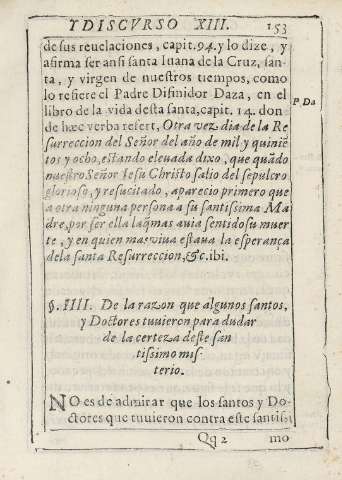 Y DISCVRSO XIII. 153
de sus reuelaciones, capit. 94. y lo dize, y
afirma ser ansi santa Iuana de la Cruz, san-
ta, y virgen de nuestros tiempos, como
lo refiere el Padre Difinidor Daza, en el
P Da
libro de la vida desta santa, capit. 14. don
de hæc verba refert, Otra vez dia de la Re
surreccion del Señor del año de mil y quiniē
tos y ocho, estando eleuada dixo, que quādo
nuestro Señor Iesu Christo salio del sepulcro
glorioso, y resucitado, aparecio primero que
a otra ninguna persona a su santissima Ma
dre, por ser ella la q̃ mas auia sentido su muer
te, y en quien mas viua estaua la esperança
de la santa Resurreccion, &c. ibi.
§. IIII. De la razon que algunos santos,
y Doctores tuuieron para dudar
de la certeza deste san
tissimo mis-
terio.
NO es de admirar que los santos y Do-
ctores que tuuieron contra este santis-
Qq 2 mo